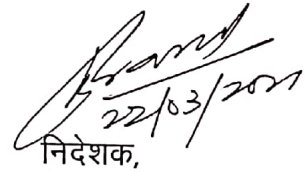 22/03/2021
निदेशक,